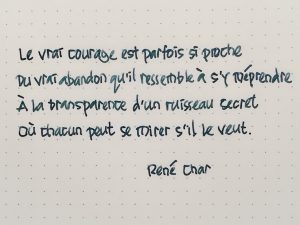 Le vrai courage est parfois si proche
Du vrai abandon qu'il ressemble à s'y méprendre
À la transparence d'un ruisseau secret
Où chacun peut se mirer s'il le veut.
René Char